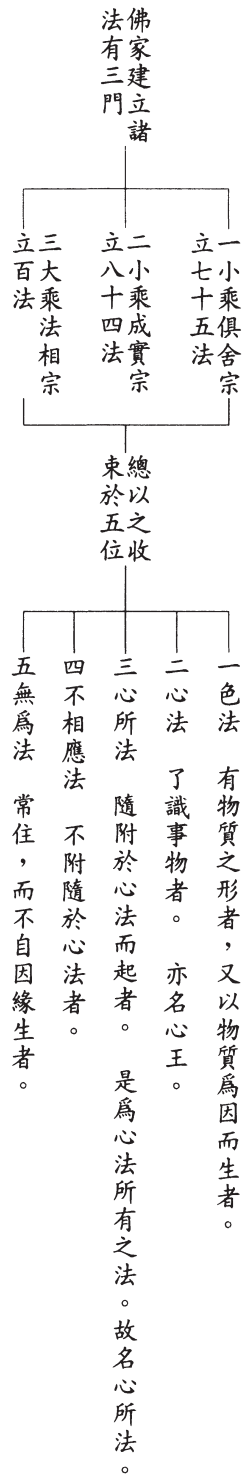 佛家建立諸
法有三門
一小乘俱舍宗
立七十五法
二小乘成實宗
立八十四法
三大乘法相宗
立百法
總以之收
束於五位
一色法　有物質之形者，又以物質爲因而生者。
二心法　了識事物者。　亦名心王。
三心所法　隨附於心法而起者。　是爲心法所有之法。故名心所法。
四不相應法　不附隨於心法者。
五無爲法　常住，而不自因緣生者。